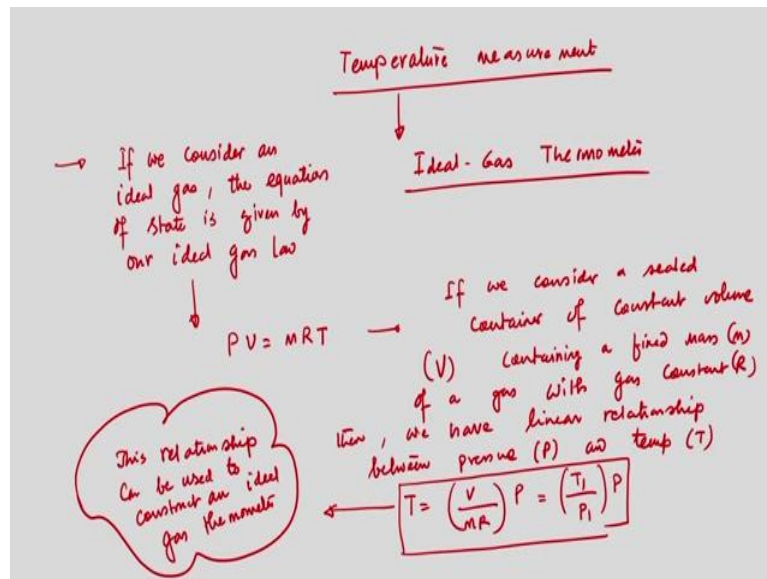 Temperature measurement
Ideal-Gas Thermometer
→ If we consider an
ideal gas, the equation
of state is given by
our ideal gas law
PV = mRT →
If we consider a sealed
container of constant volume
(V) containing a fixed mass (m)
of a gas with gas constant (R)
then, we have linear relationship
between pressure (P) and temp (T)
T = (V/mR) P = (T₁/P₁) P
This relationship
can be used to
construct an ideal
gas thermometer